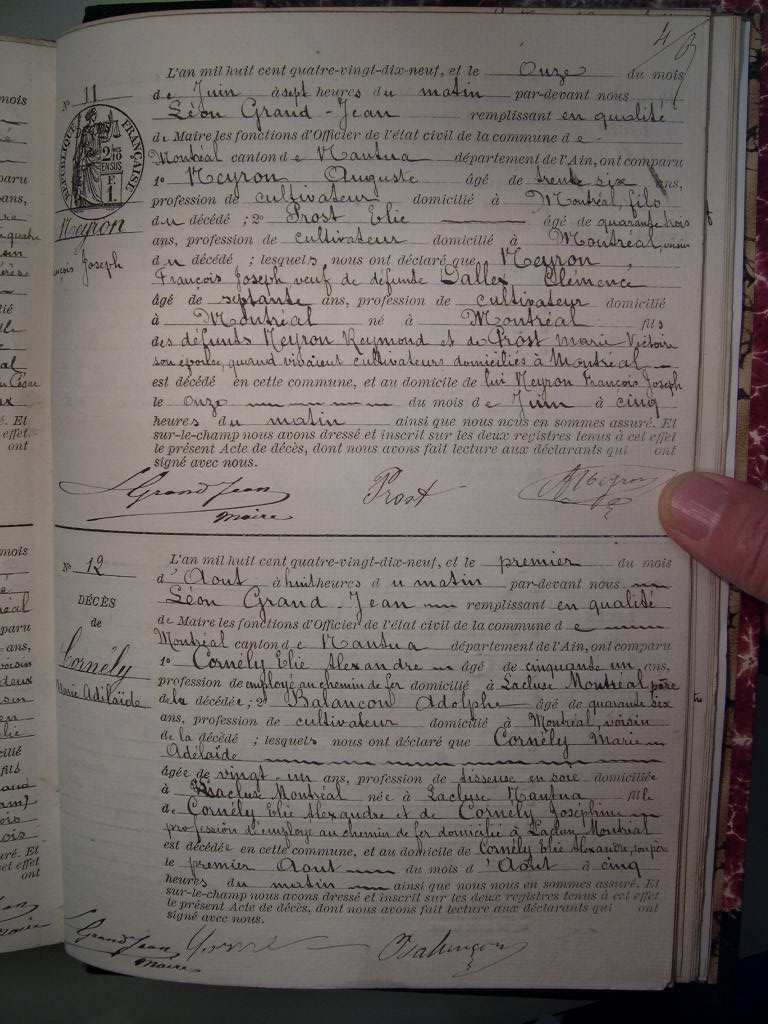 4
L'an mil huit cent quatre-vingt-dix-neuf, et le Onze du mois
de Juin à sept heures du matin par-devant nous
Léon Grand-Jean remplissant en qualité
de Maire les fonctions d'Officier de l'état civil de la commune de
Montréal canton de Nantua département de l'Ain, ont comparu
1º Neyron Auguste âgé de trente six ans,
profession de cultivateur domicilié à Montréal, fils
du décédé ; 2º Prost Elie âgé de quarante trois
ans, profession de cultivateur domicilié à Montréal, voisin
du décédé ; lesquels nous ont déclaré que Neyron
François Joseph veuf de défunte Dallex Clémence
âgé de septante ans, profession de cultivateur domicilié
à Montréal né à Montréal fils
des défunts Neyron Reymond et de Prost marie Victoire
son épouse, quand vivoient cultivateurs domiciliés à Montréal
est décédé en cette commune, et au domicile de lui Neyron François Joseph
le onze du mois de Juin à cinq
heures du matin ainsi que nous nous en sommes assuré. Et
sur-le-champ nous avons dressé et inscrit sur les deux registres tenus à cet effet
le présent Acte de décès, dont nous avons fait lecture aux déclarants qui ont
signé avec nous.
Nº 11
RÉPUBLIQUE FRANÇAISE
2 10
EN SUS
F.
1.
Neyron
Joseph
L Grand Jean
maire
Prost
Neyron
L'an mil huit cent quatre-vingt-dix-neuf, et le premier du mois
d'Aout à huit heures du matin par-devant nous
Léon Grand-Jean remplissant en qualité
de Maire les fonctions d'Officier de l'état civil de la commune de
Montréal canton de Nantua département de l'Ain, ont comparu
1º Cornély Elie Alexandre âgé de cinquante un ans,
profession de employé au chemin de fer domicilié à Lacluse Montréal père
de la décédée ; 2º Balançon Adolphe âgé de quarante six
ans, profession de cultivateur domicilié à Montréal, voisin
de la décédé ; lesquels nous ont déclaré que Cornély Marie
Adélaïde
âgée de vingt-un ans, profession de tisseuse en soie domiciliée
à Lacluse Montréal née à Lacluse Nantua fille
de Cornély Elie Alexandre et de Cornély Joséphine
profession d'employé au chemin de fer domicilié à Lacluse Montréal
est décédée en cette commune, et au domicile de Cornély Elie Alexandre, son père
le premier Aout du mois d'Aout à cinq
heures du matin ainsi que nous nous en sommes assuré. Et
sur-le-champ nous avons dressé et inscrit sur les deux registres tenus à cet effet
le présent Acte de décès, dont nous avons fait lecture aux déclarants qui ont
signé avec nous.
Nº 12
DÉCÈS
de
Cornély
Marie Adélaïde
L Grand Jean
maire
Balançon